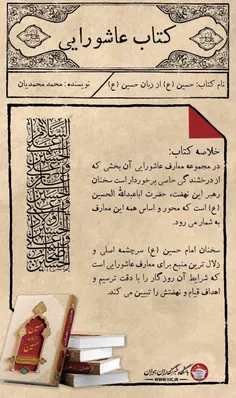 کتاب عاشورایی
نام کتاب: حسین (ع) از زبان حسین (ع) / نویسنده: محمد محمدیان
خلاصه کتاب:
در مجموعه معارف عاشورایی آن بخشی که
از درخشندگی خاصی برخوردار است سخنان
رهبر این نهضت، حضرت اباعبدالله الحسین
(ع) است که محور و اساس همه این معارف
به شمار می رود.
سخنان امام حسین (ع) سرچشمه اصلی و
زلال ترین منبع برای معارف عاشورایی است
که شرایط آن روزگار را با دقت ترسیم و
اهداف قیام و نهضتش را تبیین می کند.
باشگاه خبرنگاران جوان
WWW.YJC.IR